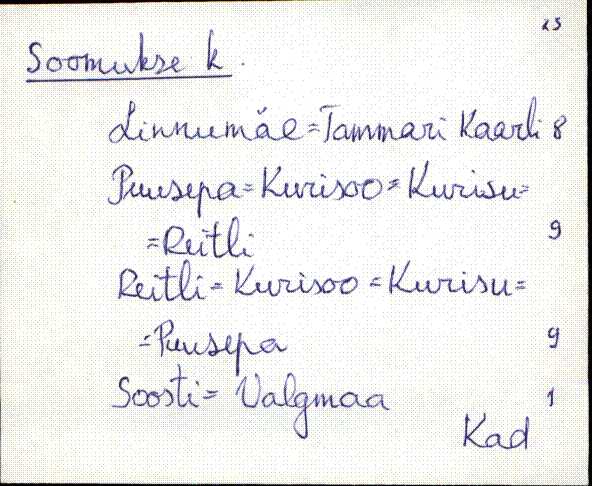 25
Soomukse k.
Linnumäe=Tammari Kaarli 8
Puusepa=Kurisoo=Kurisu=
=Reitli 9
Reitli=Kurisoo=Kurisu=
=Puusepa 9
Soosti=Valgmaa 1
Kad